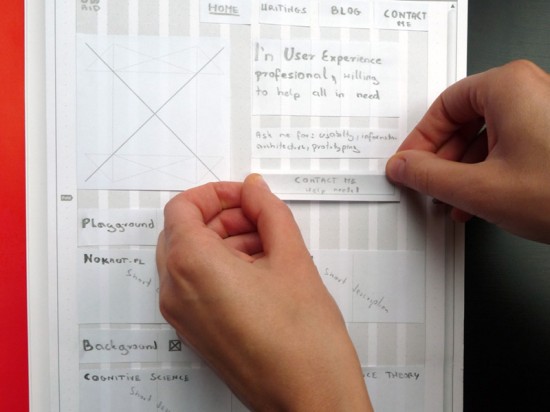 HOME WRITINGS BLOG CONTACT
ME
I'm User Experience
profesional, willing
to help all in need
Ask me for: usability, information
architecture, prototyping
CONTACT ME
Playground
NOKAUT.PL
Short description
Background
COGNITIVE SCIENCE
THEORY
Short